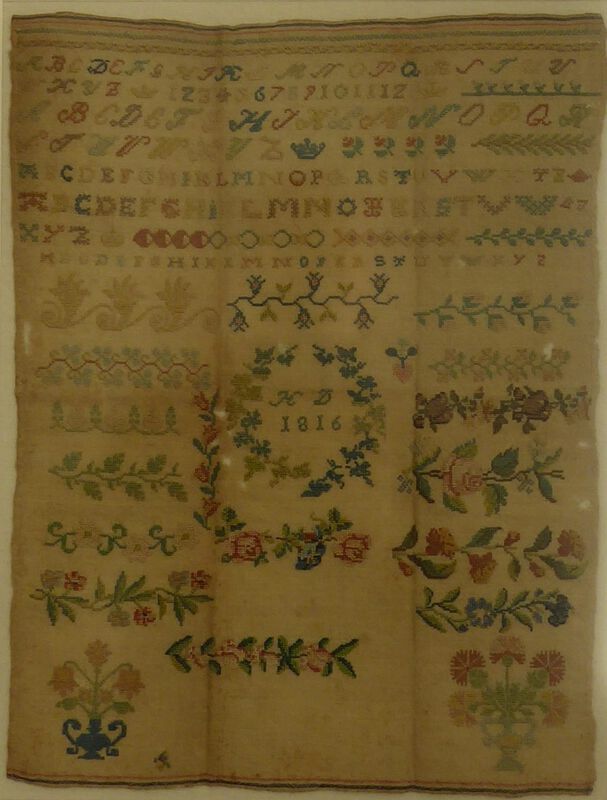 A B C D E F G H I K L M N O P Q R S T V
X Y Z 1 2 3 4 5 6 7 8 9 10 11 12
A B C D E F G H I K L M N O P Q R
S T U V W X Y Z
A B C D E F G H I K L M N O P Q R S T U V W X Y Z
A B C D E F G H I K L M N O P Q R S T U V W
X Y Z
A B C D E F G H I K L M N O P Q R S T U V W X Y Z
H D
1816